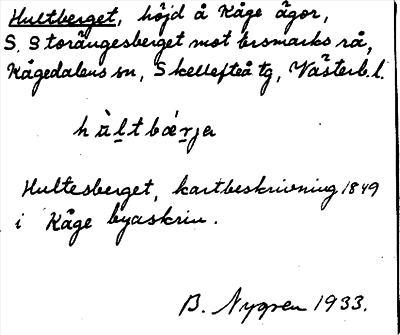 Hultberget, höjd å Kåge ägor,
S. Storängesberget mot Ersmarks rå,
Kågedalens sn, Skellefteå tg, Västerb. l.
hu̇ltbǽrjα
Hultesberget, kartbeskrivning 1849
i Kåge byaskrin.
B. Nygren 1933.